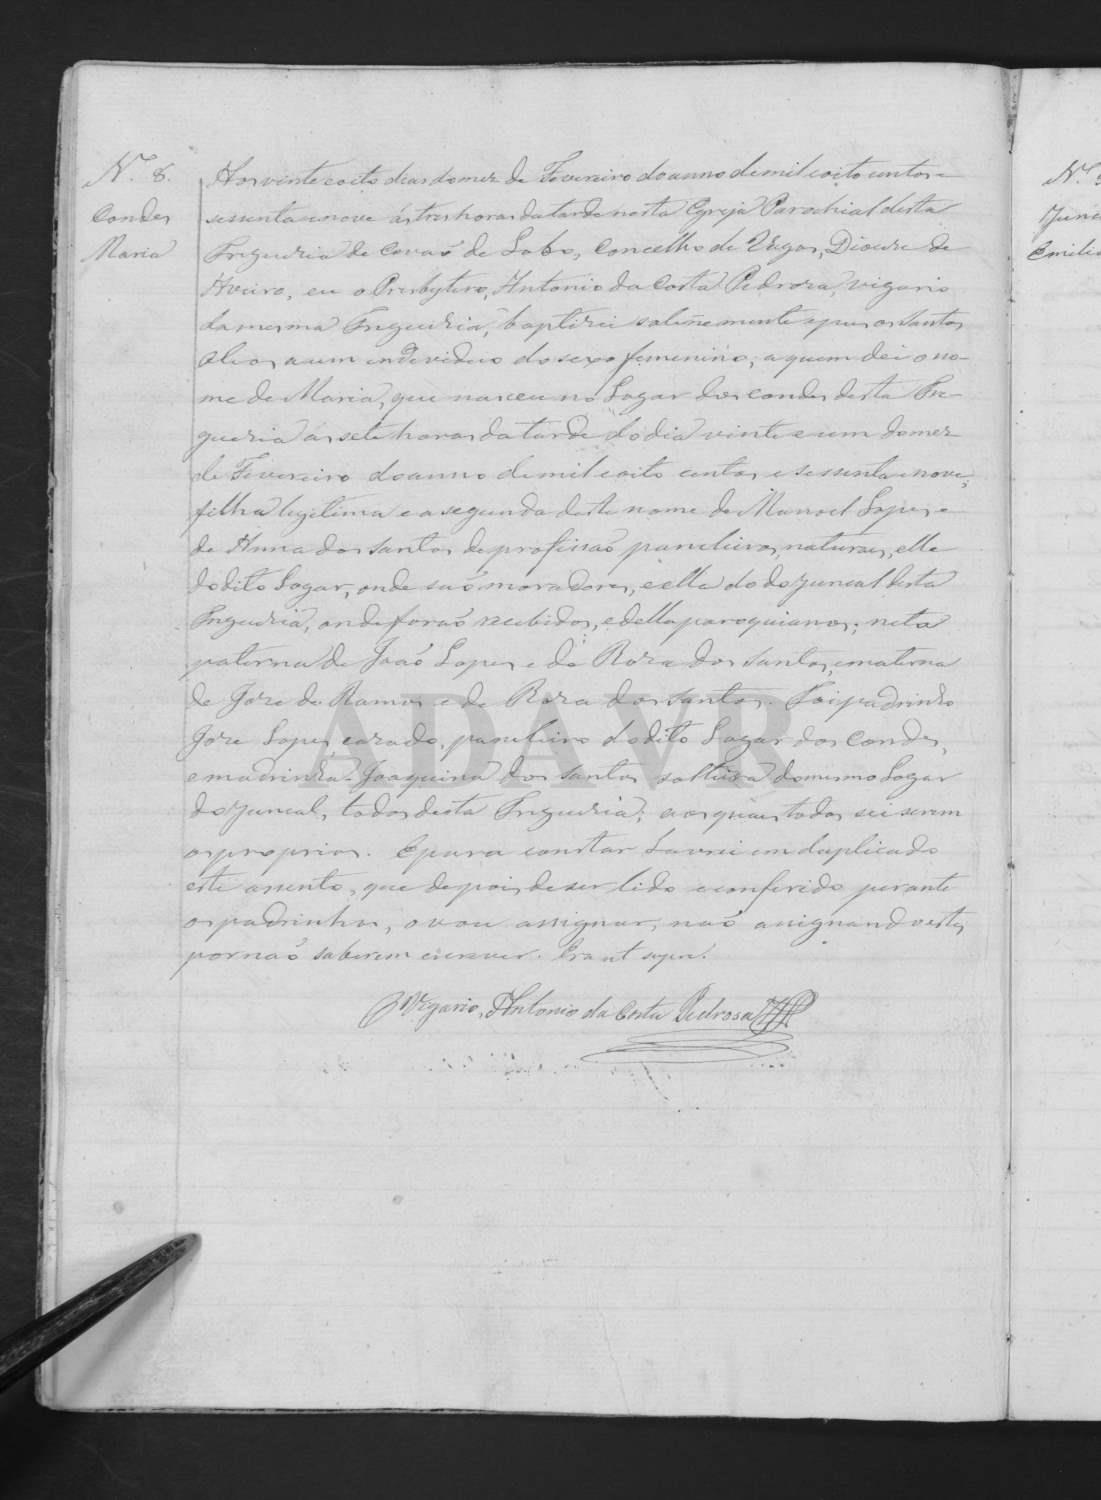 N.º 8.
Condes
Maria
Aos vinte e oito dias do mez de Fevereiro do anno de mil e oito centos e
sessenta e nove ás tres horas da tarde nesta Egreja Parochial desta
Freguezia de Covaõ de Lobo, Concelho de Vagos, Diocese de
Aveiro, eu o Presbytero, Antonio da Costa Pedroza, vigario
da mesma Freguezia, baptizei solenemente e puz os santos
oleos a um individuo do sexo femenino, a quem dei o no-
me de Maria, que nasceu no Lugar dos Condes desta Fre-
guezia ás sete horas da tarde do dia vinte e um do mez
de Fevereiro do anno de mil e oito centos e sessenta e nove,
filha legitima e a segunda deste nome de Manoel Lopes e
de Anna dos Santos de profissaõ paneleiros, naturaes, elle
do dito Lugar, onde saõ moradores, e ella do do Juncal desta
Freguezia, onde foraõ recebidos, e della paroquianos; neta
paterna de Joaõ Lopes e de Roza dos Santos, e materna
de Joze de Ramos e de Roza dos Santos. Foi padrinho
Joze Lopes, cazado, paneleiro do dito Lugar dos Condes,
e madrinha Joaquina dos Santos solteira do mesmo Lugar
do Juncal, todos desta Freguezia; aos quaes todos sei serem
os proprios. E para constar lavrei em duplicado
este assento, que depois de ser lido e conferido perante
os padrinhos, o vou assignar, naõ assignando estes
por naõ saberem escrever. Era ut supra.
O Vigario, Antonio da Costa Pedrosa
ADAVR
N.º
Emilia